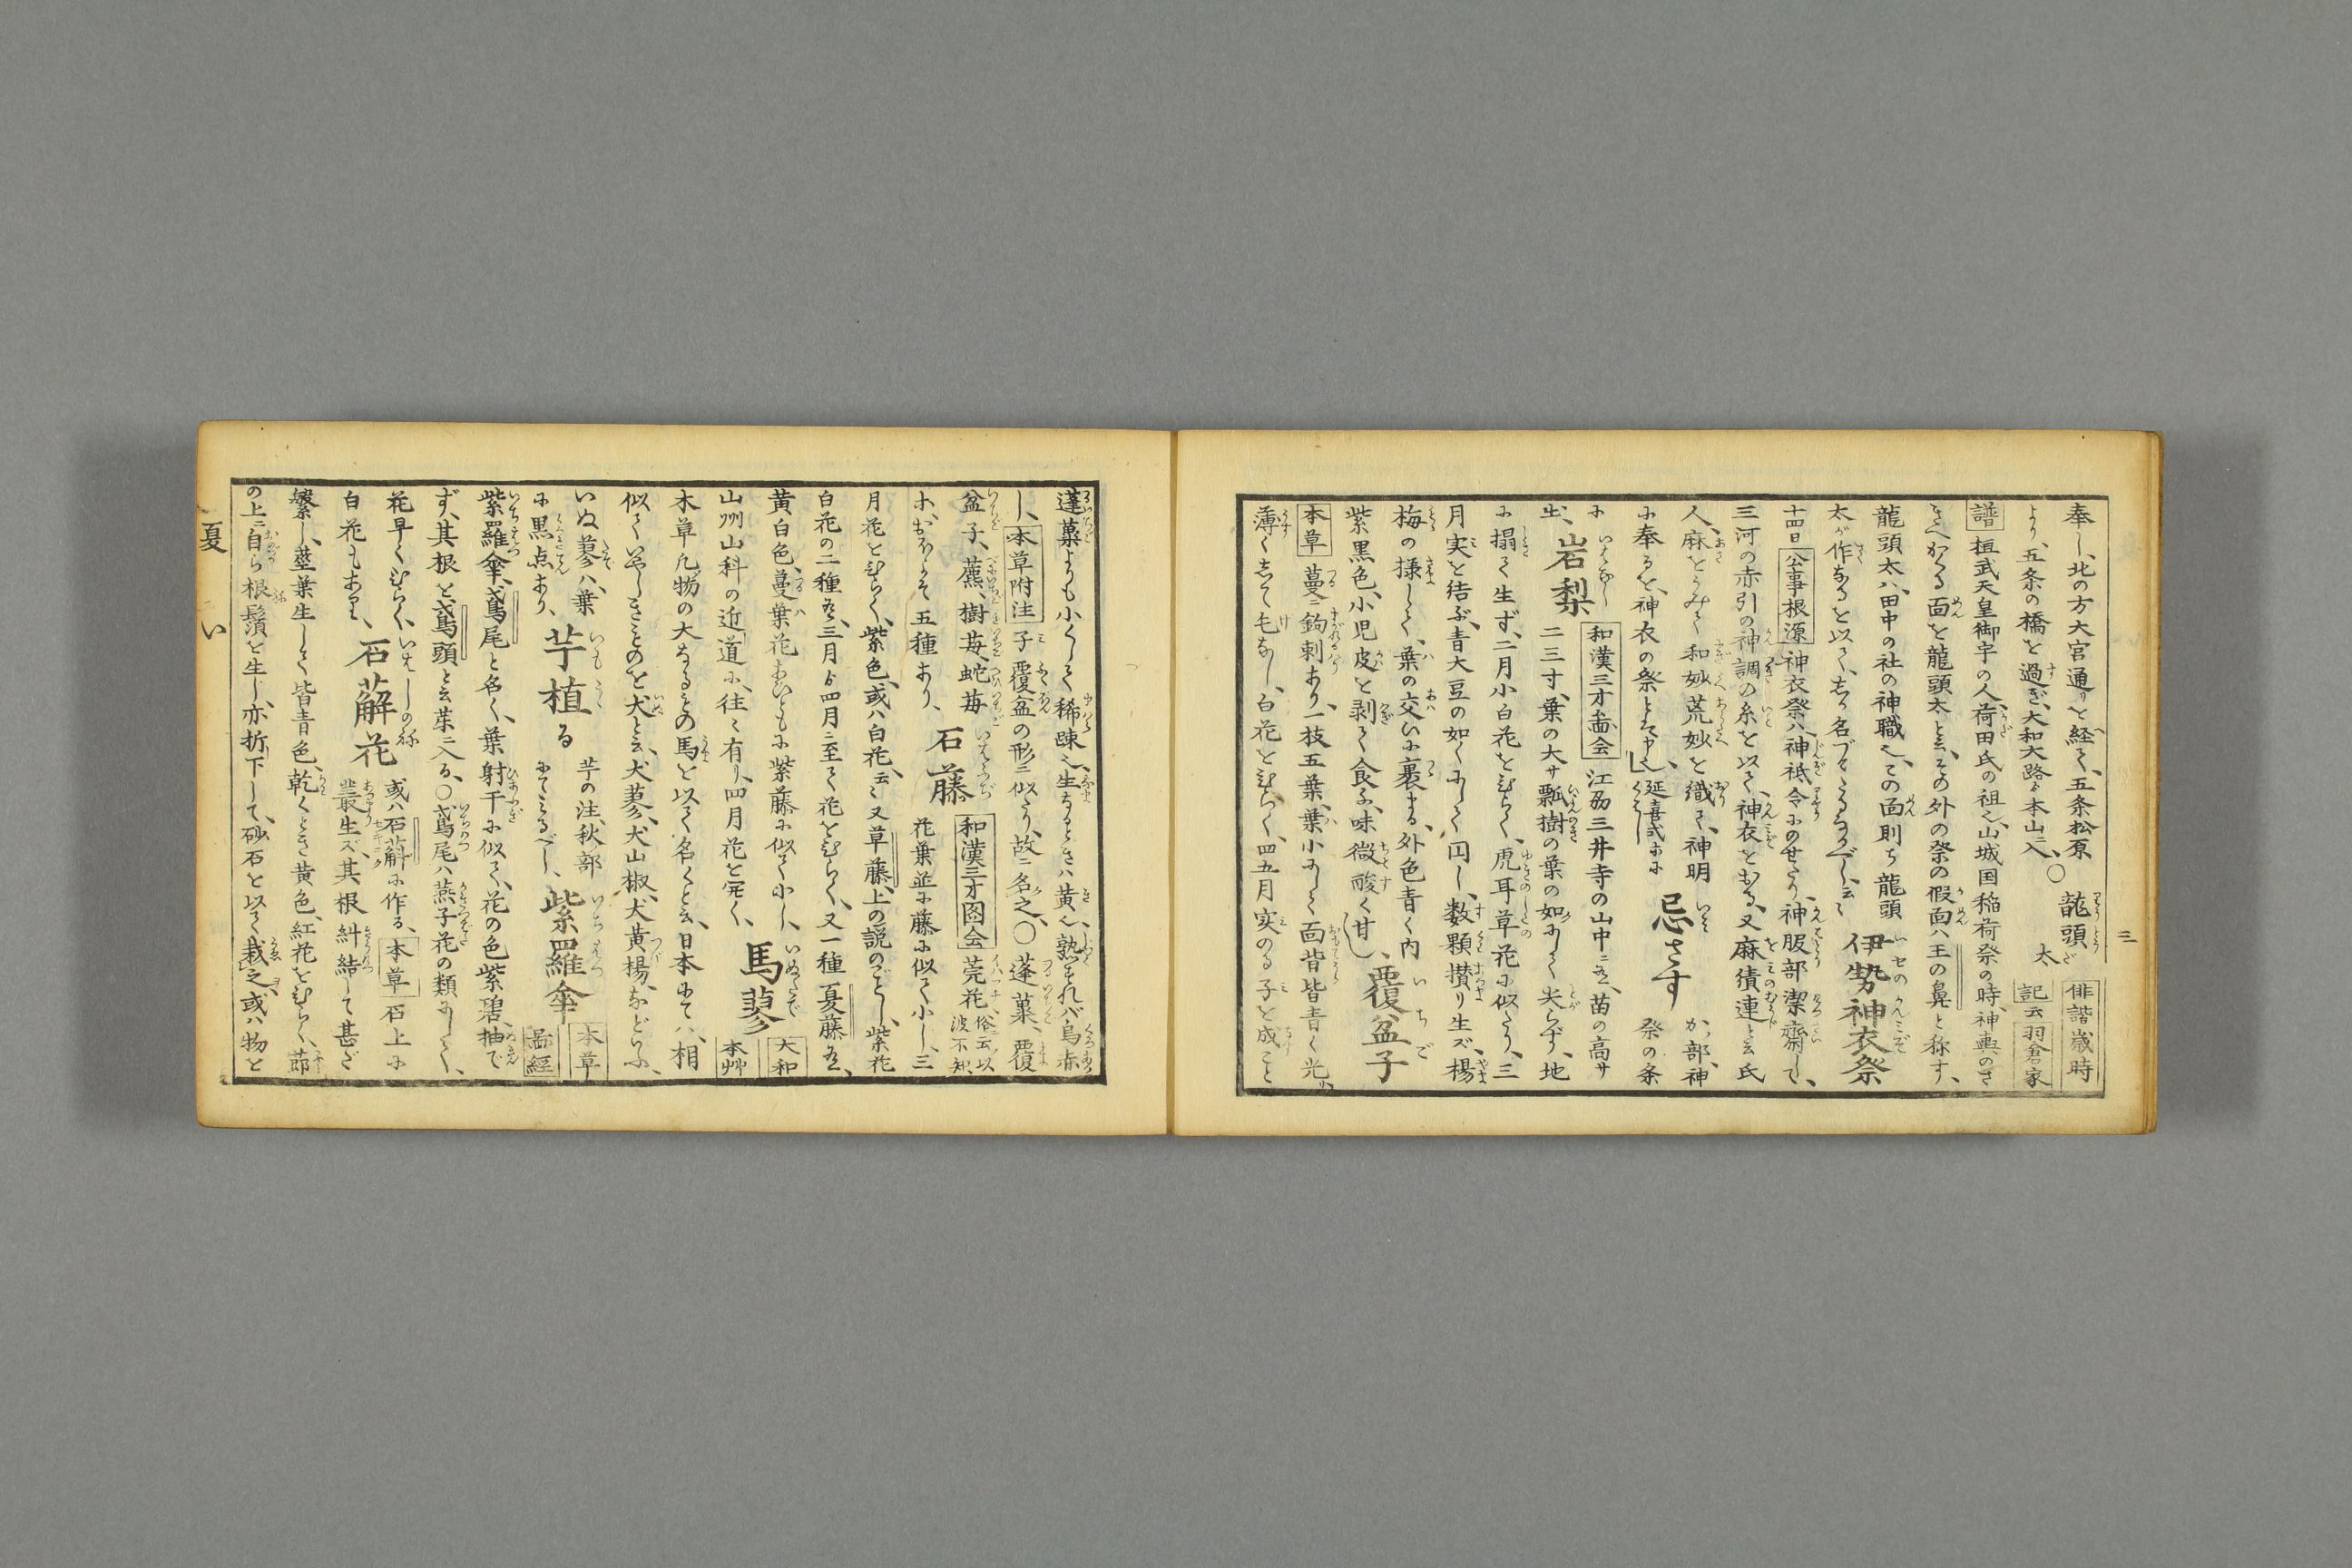 三
奉し、北の方大宮通りを経て、五条松原
より、五条の橋を過ぎ、大和大路ゟ本山ニ入、〇龍頭太 俳諧歳時記云 羽倉家
譜 桓武天皇御宇の人、荷田氏の祖也、山城国稲荷祭の時、神輿のさ
きへかくる面を龍頭太と云、その外の祭の假面ハ王の鼻と称す、
龍頭太ハ、田中の社の神職也、この面則ち龍頭
太が作なるを以て、しか名づけたるなるべし、云々 伊勢神衣祭
十四日 公事根源 神衣祭ハ、神祇令にのせたり、神服部潔齋して、
三河の赤引の神調の糸を以て、神衣をおる、又麻績連と云氏
人、麻をうみて、和妙荒妙を織て、神明
に奉るを、神衣の祭とは申也、延喜式に 忌さす 祭の条
に 岩梨 和漢三才圖会 江刕三井寺の山中ニ有、苗の高サ
二三寸、葉の大サ瓢樹の葉の如にして尖らず、地
に搨て生ず、二月小白花をひらく、虎耳草花に似たり、三
月実を結ぶ、青大豆の如くにして円し、数顆攅り生ズ、楊
梅の様して、葉の交いに裹まる、外色青く内
紫黒色、小児皮を剥て食ふ、味微酸く甘し、覆盆子
本草 蔓ニ鉤刺あり、一枝五葉、葉小にして面皆皆青く光り
薄くして毛なし、白花をひらく、四五月実のる子を成こと
蓬蔂よりも小くして稀踈也、生なるときハ黄也、熟すれバ烏赤
し、本草附注 子覆盆の形ニ似たり、故ニ名之、〇蓬蔂、覆
盆子、藨、樹苺、蛇苺 石藤 和漢三才図会 莞花、俗云、以波不知
花葉並に藤に似て小し、三
月花をひらく、紫色、或ハ白花、云々又草藤、上の説のごとし、紫花
白花の二種有、三月ゟ四月ニ至て花をひらく、又一種夏藤有、
黄白色、蔓葉花おいともに紫藤に似て小し、馬蓼 大和本艸
山州山科の近道に、往々有り、四月花を開く、
本草凡物の大なるもの馬を以て名くと云、日本にてハ、相
似ていやしきものを犬と云、犬蓼、犬山椒、犬黄楊、などいふ、
いぬ蓼ハ、葉 芋植る 芋の注、秋部
に黒点あり、にてみるべし、紫羅傘 本草 圖経
紫羅傘、鳶尾と名く、葉射干に似て、花の色紫碧、抽で
ず、其根を、鳶頭と云、茱ニ入る、〇鳶尾ハ燕子花の類にして、
花早くひらく、石薢花 或ハ石蒴に作る、本草 石上に
白花もあり、叢生ズ、其根糾結して甚ざ
繁し、莖葉生して皆青色、乾くとき黄色、紅花をひらく、莭
の上ニ自ら根鬚を生じ、亦折下して、砂石を以て栽之、或ハ物を
夏 い